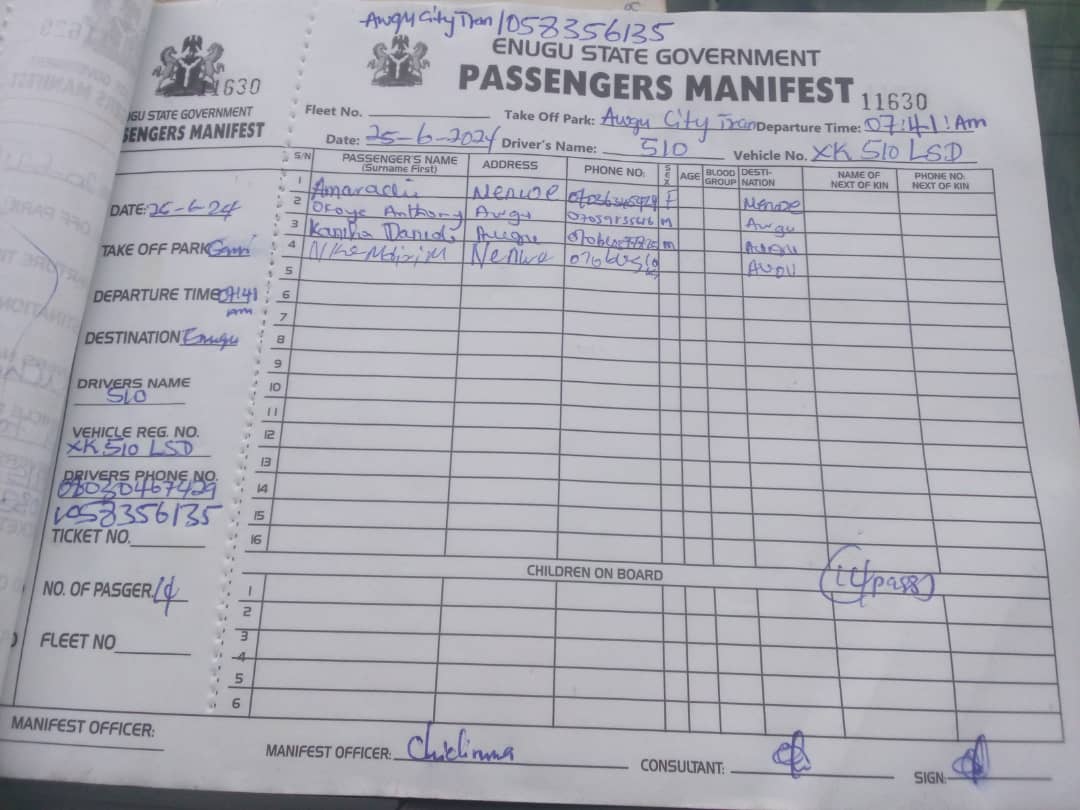 Awgu City Tran/058356135
11630
ENUGU STATE GOVERNMENT
PASSENGERS MANIFEST 11630
Fleet No. Take Off Park: Awgu City Tran Departure Time: 07:41:Am
Date: 25-6-2024 Driver's Name: 510 Vehicle No. XK 510 LSD
S/N PASSENGER'S NAME (Surname First) ADDRESS PHONE NO: SEX AGE BLOOD GROUP DESTI-NATION NAME OF NEXT OF KIN PHONE NO: NEXT OF KIN
1 Amarachi Nenwe F Nenwe
2 Okoye Anthony Awgu m Awgu
3 Daniel Awgu m Awgu
4 Nkemdirim Nenwe Awgu
5
6
7
8
9
10
11
12
13
14
15
16
CHILDREN ON BOARD
1
2
3
4
5
6
14/pass
MANIFEST OFFICER: Chidinma CONSULTANT: SIGN:
GU STATE GOVERNMENT
SENGERS MANIFEST
DATE: 25-6-24
TAKE OFF PARK
DEPARTURE TIME 07:41
am
DESTINATION Enugu
DRIVERS NAME
510
VEHICLE REG. NO.
XK 510 LSD
DRIVERS PHONE NO.
08030467429
058356135
TICKET NO.
NO. OF PASGER. 14
FLEET NO
MANIFEST OFFICER: